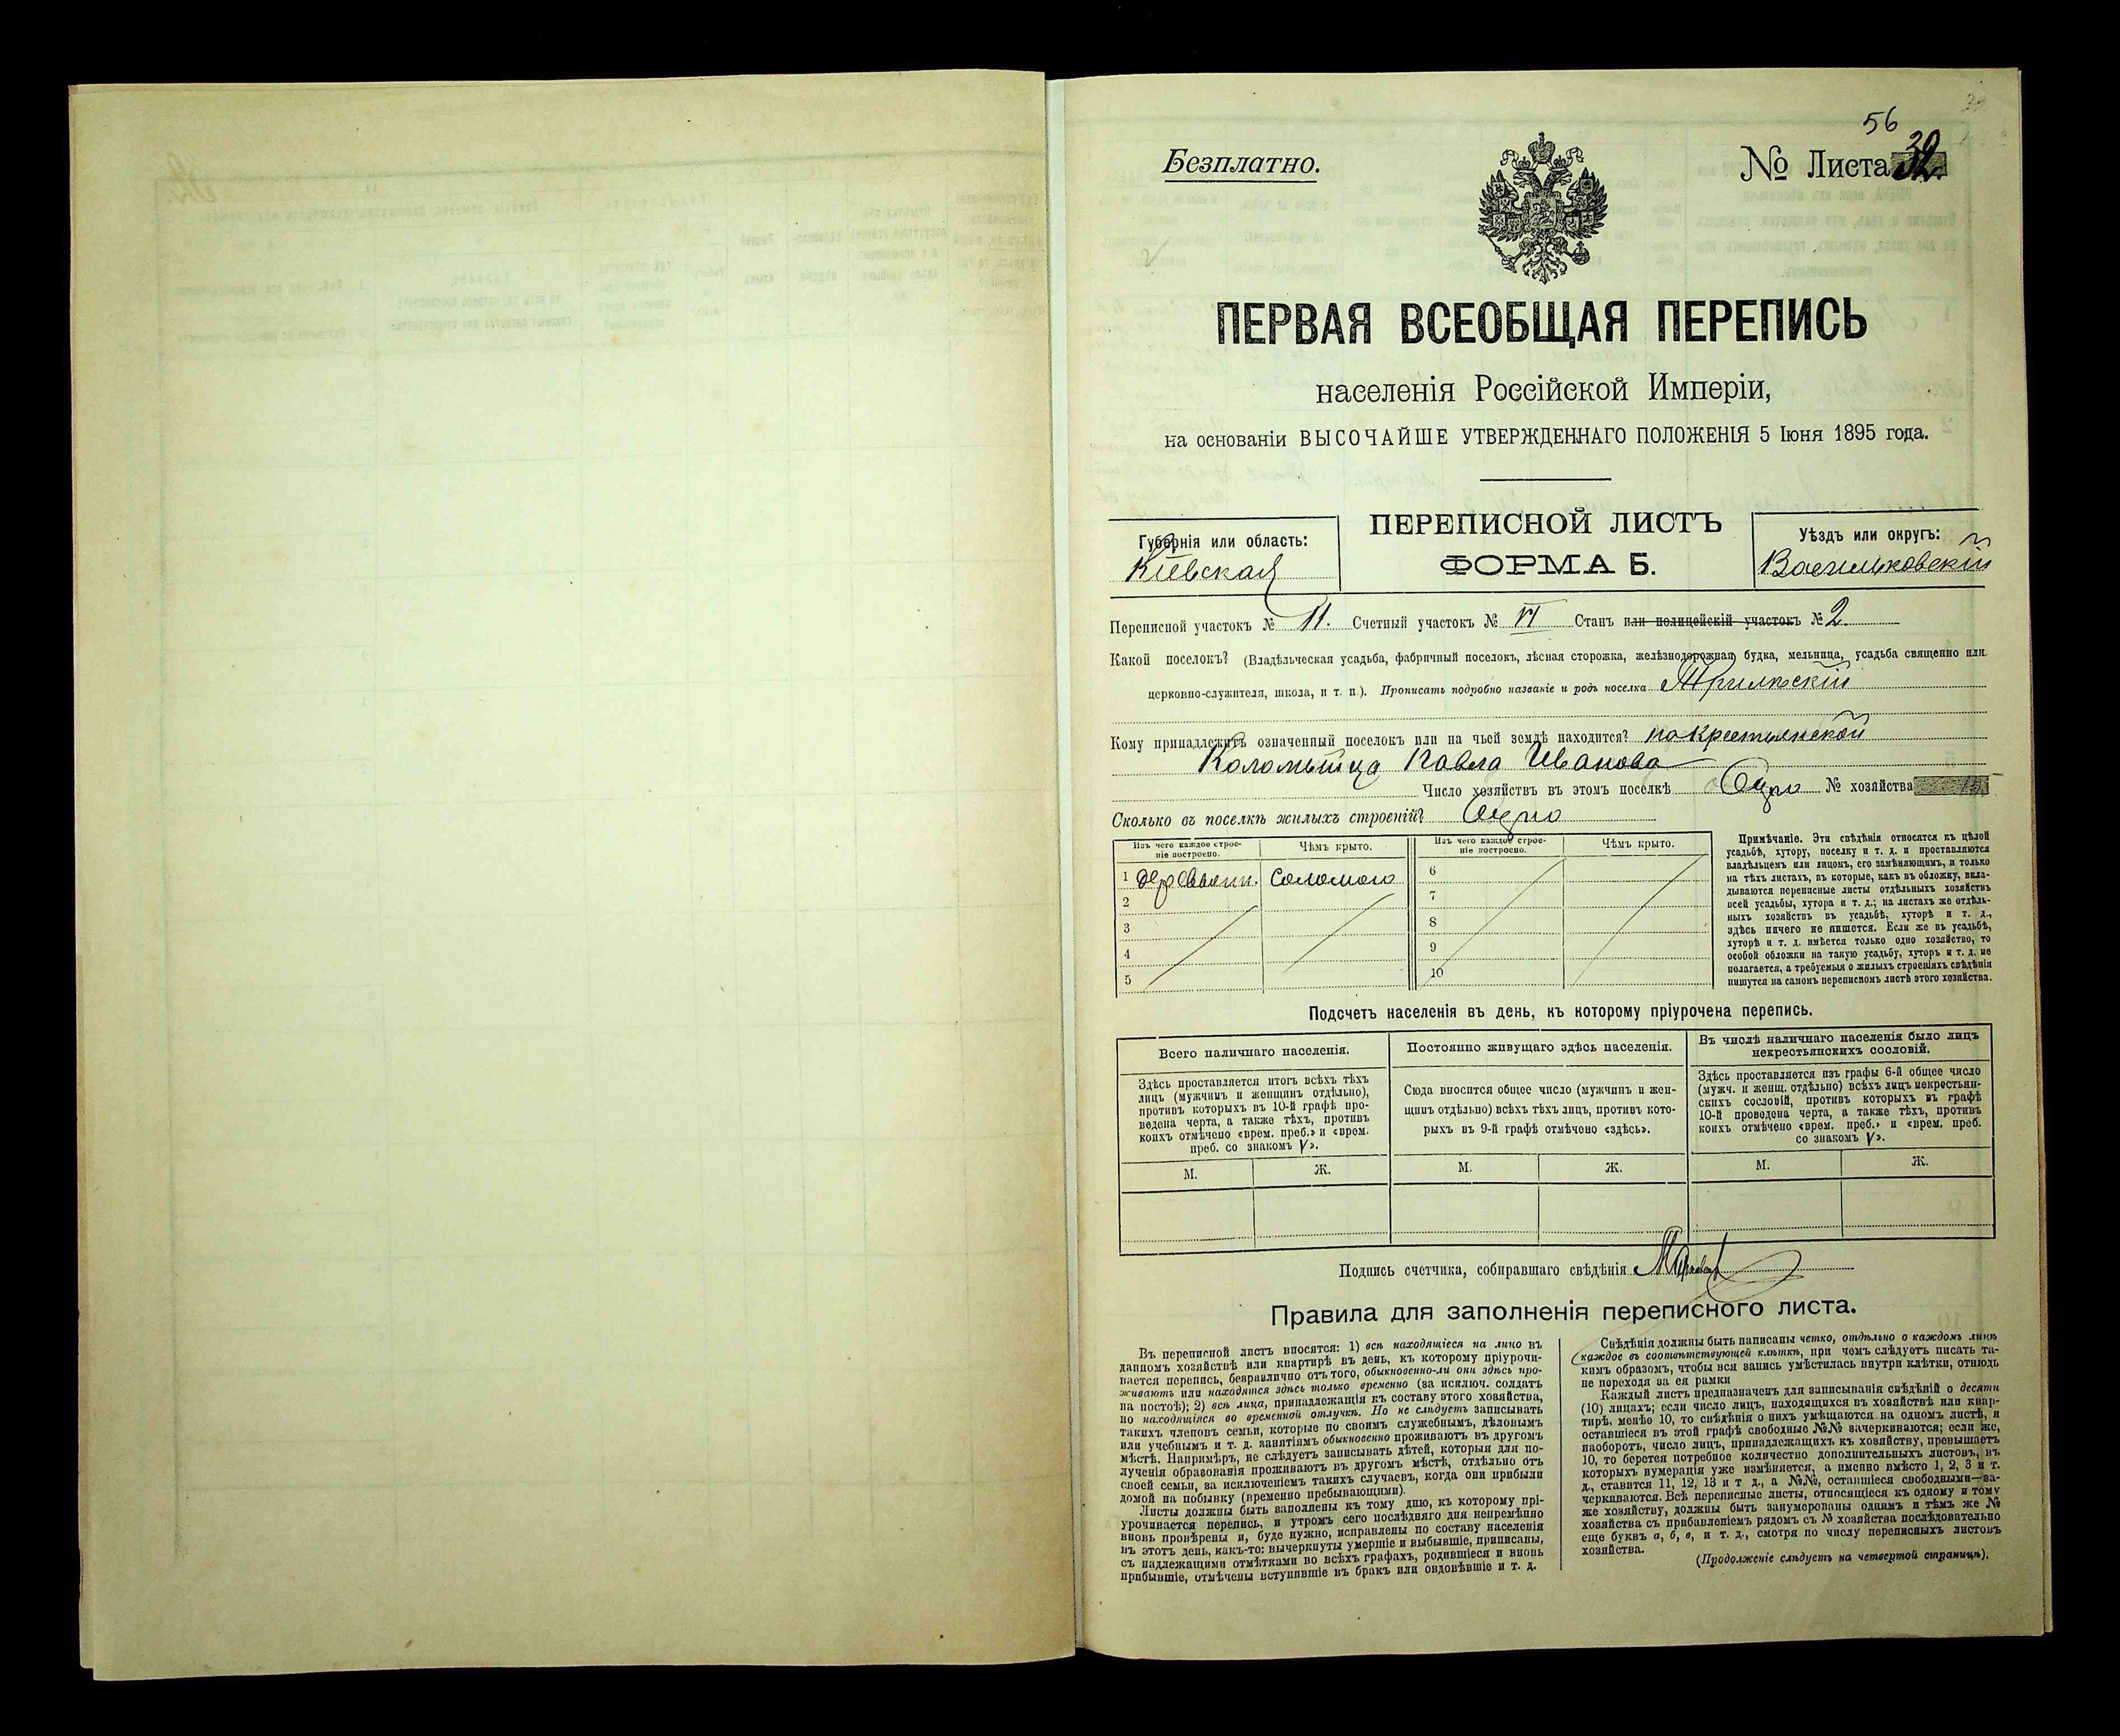 56
Безплатно.
№ Листа 32.
ПЕРВАЯ ВСЕОБЩАЯ ПЕРЕПИСЬ
населенія Россійской Имперіи,
на основаніи ВЫСОЧАЙШЕ УТВЕРЖДЕННАГО ПОЛОЖЕНІЯ 5 Іюня 1895 года.
Губернія или область:
Кіевская
ПЕРЕПИСНОЙ ЛИСТЪ
ФОРМА Б.
Уѣздъ или округъ:
Васильковскій
Переписной участокъ № 11. Счетный участокъ № VI Станъ или полицейскій участокъ № 2
Какой поселокъ? (Владѣльческая усадьба, фабричный поселокъ, лѣсная сторожка, желѣзнодорожная будка, мельница, усадьба священно или
церковно-служителя, школа, и т. п.). Прописать подробно названіе и родъ поселка Трилѣскій
Кому принадлежитъ означенный поселокъ или на чьей землѣ находится? на крестьянской
Коломыйца Павла Иванова
Число хозяйствъ въ этомъ поселкѣ Одно № хозяйства
Сколько въ поселкѣ жилыхъ строеній? Одно
Изъ чего каждое строе-
ніе построено.
Чѣмъ крыто.
Изъ чего каждое строе-
ніе построено.
Чѣмъ крыто.
1 деревянн. соломою
2
3
4
5
6
7
8
9
10
Примѣчаніе. Эти свѣдѣнія относятся къ цѣлой
усадьбѣ, хутору, поселку и т. д. и проставляются
владѣльцемъ или лицомъ, его замѣняющимъ, и только
на тѣхъ листахъ, въ которые, какъ въ обложку, вкла-
дываются переписные листы отдѣльныхъ хозяйствъ
всей усадьбы, хутора и т. д.; на листахъ же отдѣль-
ныхъ хозяйствъ въ усадьбѣ, хуторѣ и т. д.,
здѣсь ничего не пишется. Если же въ усадьбѣ,
хуторѣ и т. д. имѣется только одно хозяйство, то
особой обложки на такую усадьбу, хуторъ и т. д. не
полагается, а требуемыя о жилыхъ строеніяхъ свѣдѣнія
пишутся на самомъ переписномъ листѣ этого хозяйства.
Подсчетъ населенія въ день, къ которому пріурочена перепись.
Всего наличнаго населенія.
Здѣсь проставляется итогъ всѣхъ тѣхъ
лицъ (мужчинъ и женщинъ отдѣльно),
противъ которыхъ въ 10-й графѣ про-
ведена черта, а также тѣхъ, противъ
коихъ отмѣчено «врем. преб.» и «врем.
преб. со знакомъ V».
М. Ж.
Постоянно живущаго здѣсь населенія.
Сюда вносится общее число (мужчинъ и жен-
щинъ отдѣльно) всѣхъ тѣхъ лицъ, противъ кото-
рыхъ въ 9-й графѣ отмѣчено «здѣсь».
М. Ж.
Въ числѣ наличнаго населенія было лицъ
некрестьянскихъ сословій.
Здѣсь проставляется изъ графы 6-й общее число
(мужч. и женщ. отдѣльно) всѣхъ лицъ некрестьян-
скихъ сословій, противъ которыхъ въ графѣ
10-й проведена черта, а также тѣхъ, противъ
коихъ отмѣчено «врем. преб.» и «врем. преб.
со знакомъ V».
М. Ж.
Подпись счетчика, собиравшаго свѣдѣнія
Правила для заполненія переписного листа.
Въ переписной листъ вносятся: 1) всѣ находящіеся на лицо въ
данномъ хозяйствѣ или квартирѣ въ день, къ которому пріурочи-
вается перепись, безразлично отъ того, обыкновенно-ли они здѣсь про-
живаютъ или находятся здѣсь только временно (за исключ. солдатъ
на постоѣ); 2) всѣ лица, принадлежащія къ составу этого хозяйства,
но находящіяся во временной отлучкѣ. Но не слѣдуетъ записывать
такихъ членовъ семьи, которые по своимъ служебнымъ, дѣловымъ
или учебнымъ и т. д. занятіямъ обыкновенно проживаютъ въ другомъ
мѣстѣ. Напримѣръ, не слѣдуетъ записывать дѣтей, которыя для по-
лученія образованія проживаютъ въ другомъ мѣстѣ, отдѣльно отъ
своей семьи, за исключеніемъ такихъ случаевъ, когда они прибыли
домой на побывку (временно пребывающими).
Листы должны быть заполнены къ тому дню, къ которому прі-
урочивается перепись, и утромъ сего послѣдняго дня непремѣнно
вновь провѣрены и, буде нужно, исправлены по составу населенія
въ этотъ день, какъ-то: вычеркнуты умершіе и выбывшіе, приписаны,
съ надлежащими отмѣтками во всѣхъ графахъ, родившіеся и вновь
прибывшіе, отмѣчены вступившіе въ бракъ или овдовѣвшіе и т. д.
Свѣдѣнія должны быть написаны четко, отдѣльно о каждомъ лицѣ
каждое въ соотвѣтствующей клѣткѣ, при чемъ слѣдуетъ писать та-
кимъ образомъ, чтобы вся запись умѣстилась внутри клѣтки, отнюдь
не переходя за ея рамки
Каждый листъ предназначенъ для записыванія свѣдѣній о десяти
(10) лицахъ; если число лицъ, находящихся въ хозяйствѣ или квар-
тирѣ, менѣе 10, то свѣдѣнія о нихъ умѣщаются на одномъ листѣ, и
оставшіеся въ этой графѣ свободные №№ зачеркиваются; если же,
наоборотъ, число лицъ, принадлежащихъ къ хозяйству, превышаетъ
10, то берется потребное количество дополнительныхъ листовъ, въ
которыхъ нумерація уже измѣняется, а именно вмѣсто 1, 2, 3 и т.
д., ставится 11, 12, 13 и т д., а №№, оставшіеся свободными—за-
черкиваются. Всѣ переписные листы, относящіеся къ одному и тому
же хозяйству, должны быть занумерованы однимъ и тѣмъ же №
хозяйства съ прибавленіемъ рядомъ съ № хозяйства послѣдовательно
еще буквъ а, б, в, и т. д., смотря по числу переписныхъ листовъ
хозяйства.
(Продолженіе слѣдуетъ на четвертой страницѣ).